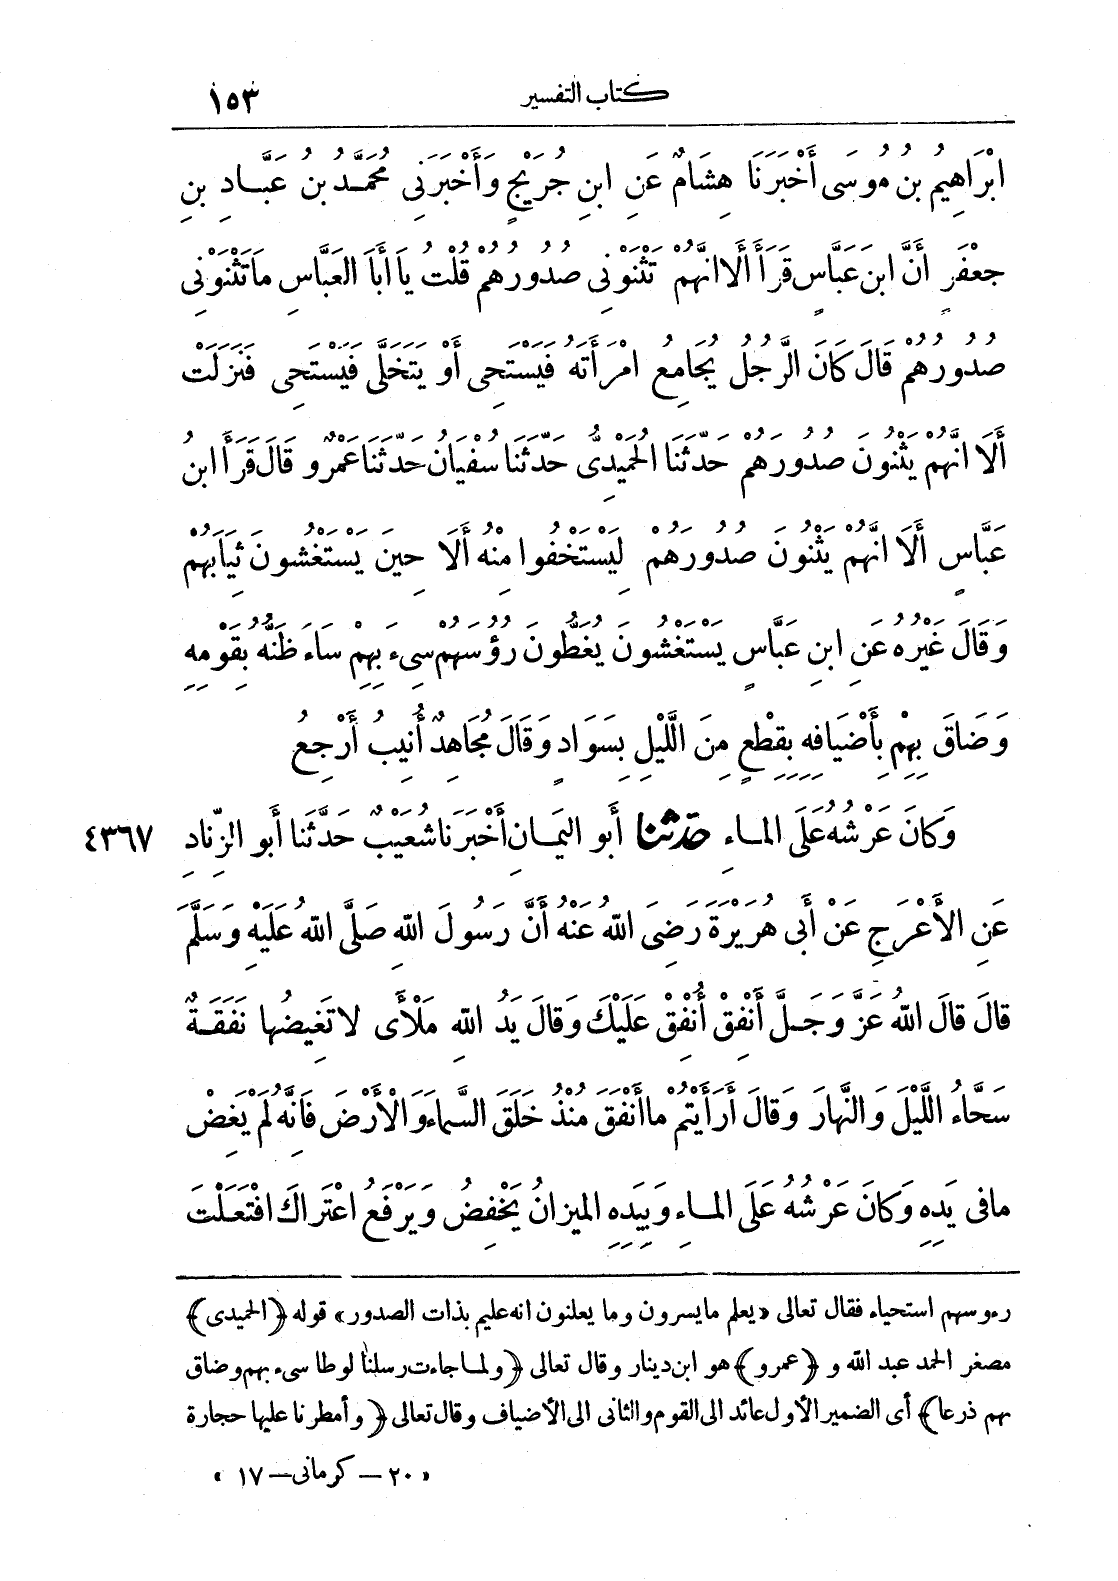 كتاب التفسير ١٥٣
ابْرَاهِيمُ بن مُوسَى أَخْبَرَنَا هِشَامٌ عَنِ ابنِ جُرَيْجٍ وَأَخْبَرَنِى مُحَمَّدُ بن عَبَّادِ بنِ
جعْفَرٍ أَنَّ ابنَ عَبَّاسٍ قَرَأَ أَلَا انَّهُمْ تَثْنَوْنِى صُدُورُهُمْ قُلْتُ يَا أَبَا العَبَّاسِ مَا تَثْنَوْنِى
صُدُورُهُمْ قَالَ كَانَ الرَّجُلُ يُجَامِعُ امْرَأَتَهُ فَيَسْتَحِى أَوْ يَتَخَلَّى فَيَسْتَحِى فَنَزَلَتْ
أَلَا انَّهُمْ يَثْنُونَ صُدُورَهُمْ حَدَّثَنَا الحُمَيْدِىُّ حَدَّثَنَا سُفْيَانُ حَدَّثَنَا عَمْرٌو قَالَ قَرَأَ ابنُ
عَبَّاسٍ أَلَا انَّهُمْ يَثْنُونَ صُدُورَهُمْ لِيَسْتَخْفُوا مِنْهُ أَلَا حِينَ يَسْتَغْشُونَ ثِيَابَهُمْ
وَقَالَ غَيْرُهُ عَنِ ابنِ عَبَّاسٍ يَسْتَغْشُونَ يُغَطُّونَ رُؤُسَهُمْ سِىءَ بِهِمْ سَاءَ ظَنُّهُ بِقَوْمِهِ
وَضَاقَ بِهِمْ بِأَضْيَافِهِ بِقِطْعٍ مِنَ اللَّيْلِ بِسَوَادٍ وَقَالَ مُجَاهِدٌ أُنِيبُ أَرْجِعُ
وَكَانَ عَرْشُهُ عَلَى المـاءِ حَدَّثَنَا أَبو اليَمَـانِ أَخْبَرَنَا شُعَيْبٌ حَدَّثَنَا أَبو الزِّنادِ ٤٣٦٧
عَنِ الأَعْرَجِ عَنْ أَبِى هُرَيْرَةَ رَضِىَ اللهُ عَنْهُ أَنَّ رَسُولَ اللهِ صَلَّى اللهُ عَلَيْهِ وَسَلَّمَ
قالَ قالَ اللهُ عَزَّ وَجَـلَّ أَنْفِقْ أُنْفِقْ عَلَيْكَ وَقالَ يَدُ اللهِ مَلْأَى لا تَغِيضُها نَفَقَـةٌ
سَحَّاءُ اللَّيْلَ وَالنَّهارَ وَقالَ أَرَأَيْتُمْ ما أَنْفَقَ مُنْذُ خَلَقَ السَّماءَ وَالْأَرْضَ فَانَّهُ لَمْ يَغِضْ
مافى يَدِهِ وَكانَ عَرْشُهُ عَلَى المـاءِ وَبِيَدِهِ الميزانُ يَخْفِضُ وَيَرْفَعُ اعْتَراكَ افْتَعَلْتَ
رءوسهم استحياء فقال تعالى «يعلم ما يسرون وما يعلنون انه عليم بذات الصدور» قوله ﴿الحميدى﴾
مصغر الحمد عبد الله و ﴿عمرو﴾ هو ابن دينار وقال تعالى ﴿ولمـا جاءت رسلنا لوطا سىء بهم وضاق
بهم ذرعا﴾ أى الضمير الأول عائد الى القوم والثانى الى الأضياف وقال تعالى ﴿وأمطرنا عليها حجارة
« ٢٠ – كرمانى – ١٧ »